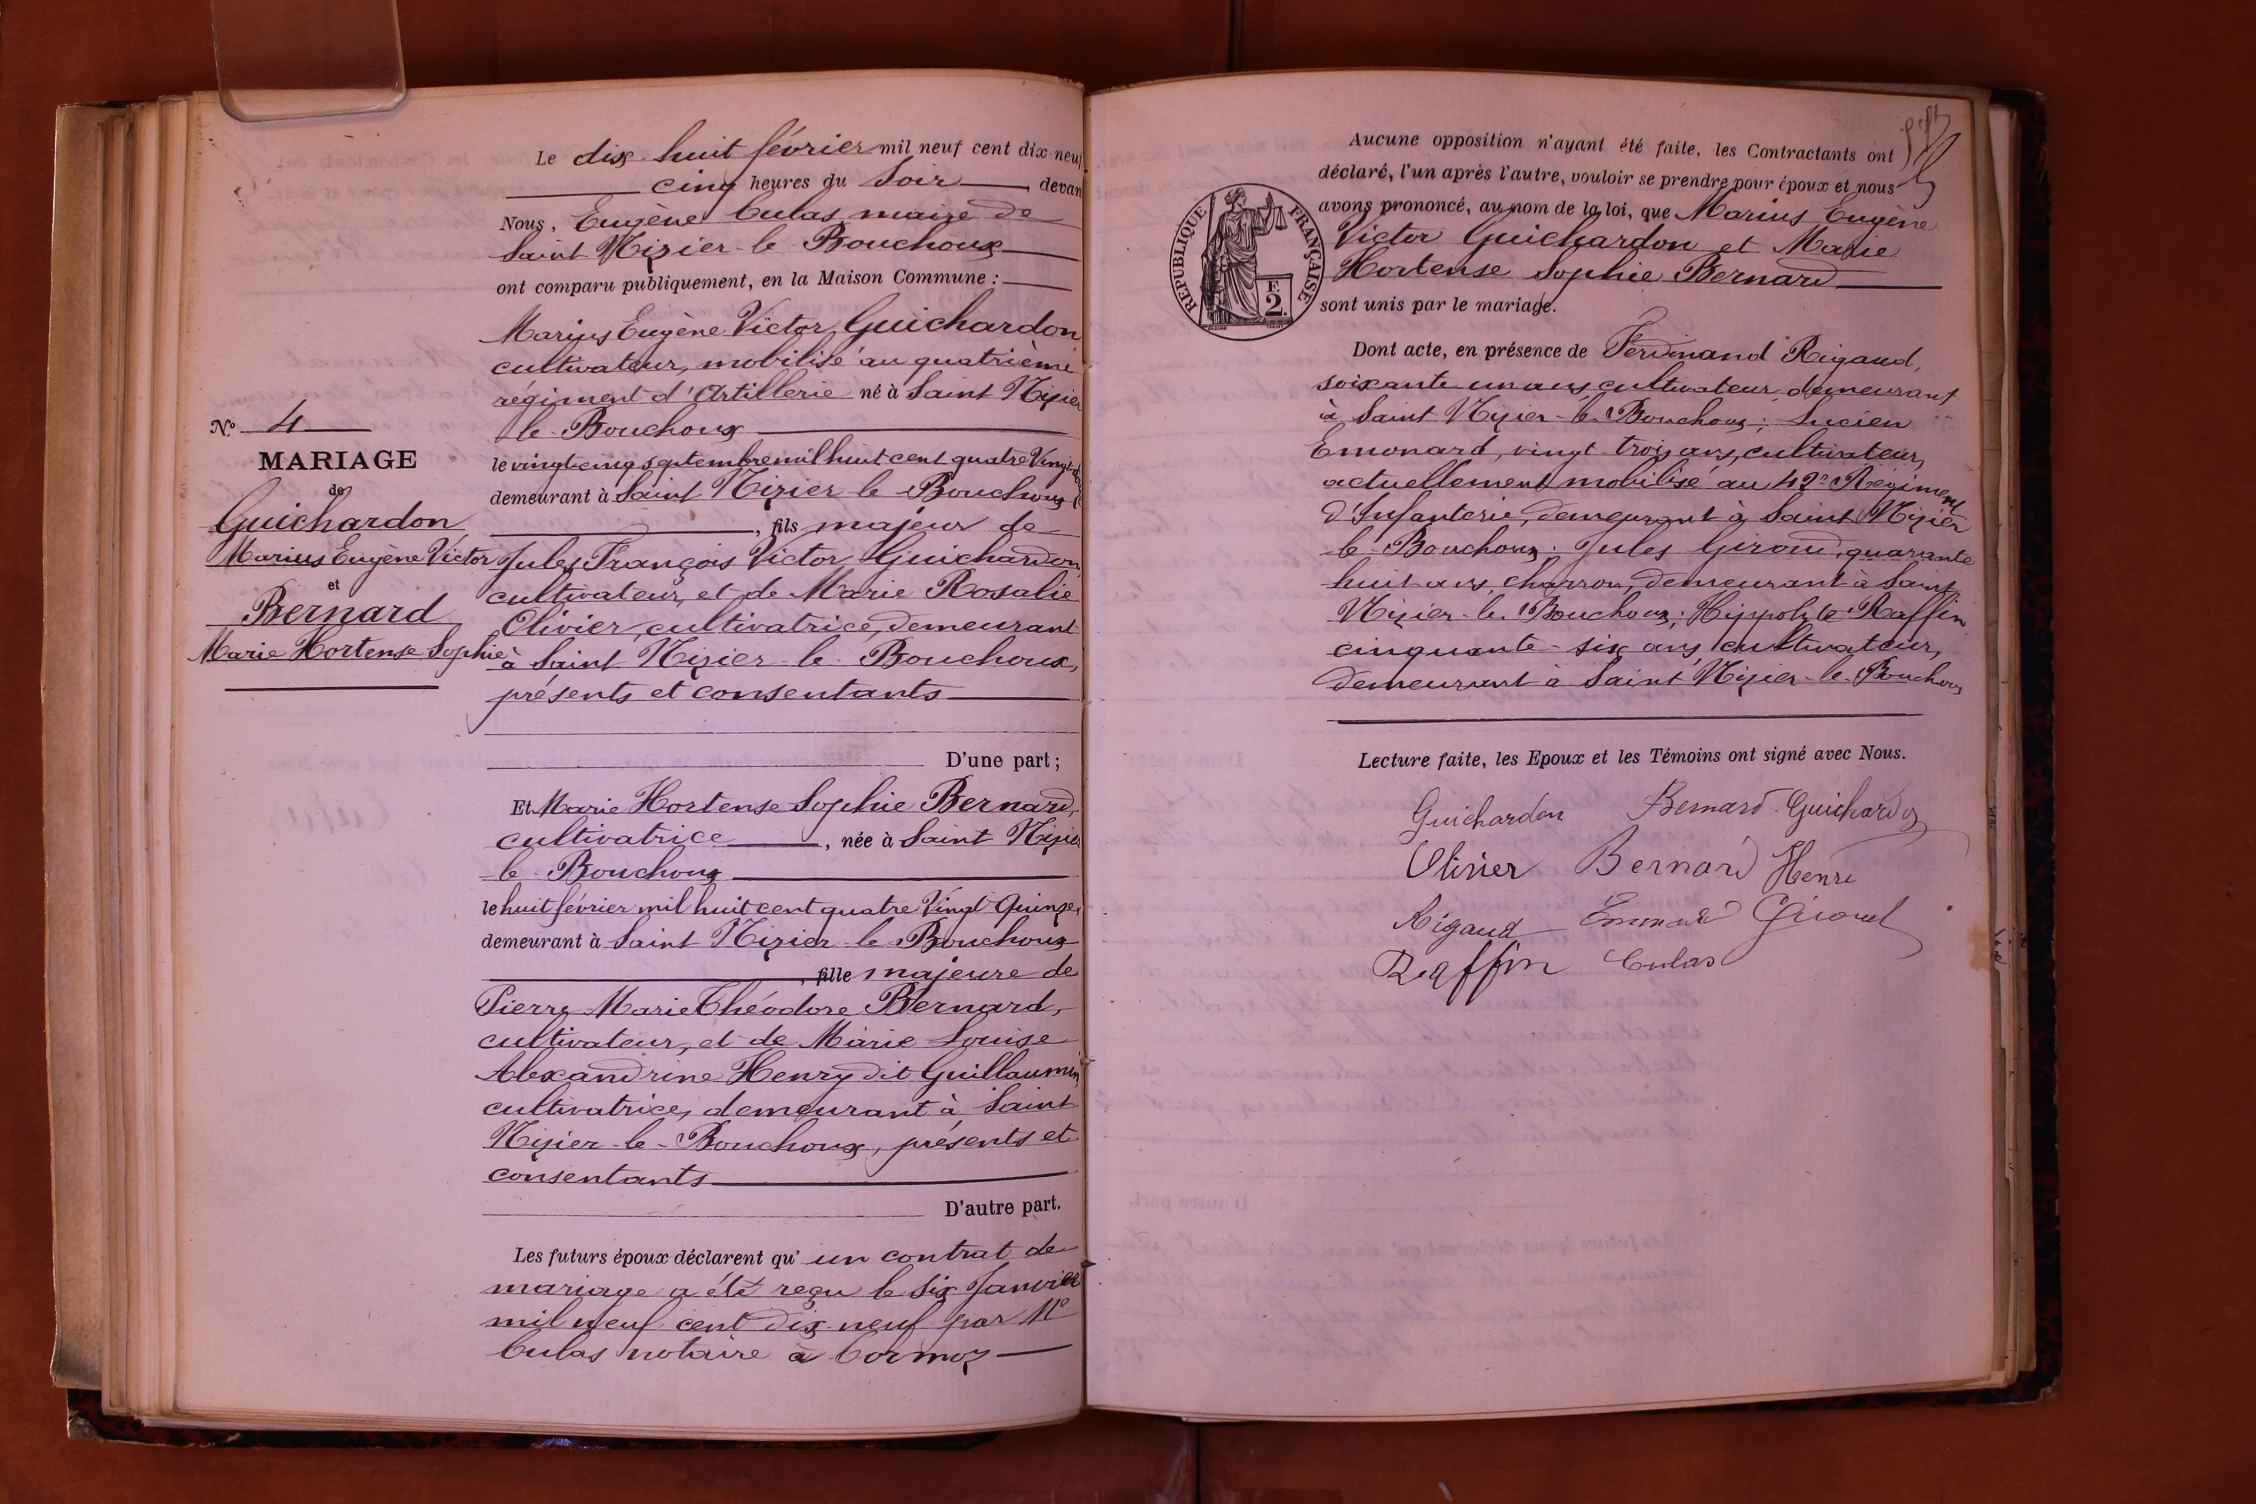 Le dix-huit février mil neuf cent dix-neuf
cinq heures du soir, devan
Nous, Eugène Culas maire de
Saint Nizier-le-Bouchoux
ont comparu publiquement, en la Maison Commune :
Marius Eugène Victor Guichardon
cultivateur, mobilisé au quatrième
régiment d'Artillerie né à Saint Nizier
le-Bouchoux
le vingt cinq septembre mil huit cent quatre Vingt
demeurant à Saint Nizier-le-Bouchoux
, fils majeur de
Jules François Victor Guichardon,
cultivateur, et de Marie Rosalie
Olivier, cultivatrice, demeurant
à Saint Nizier-le-Bouchoux,
présents et consentants
D'une part ;
Et Marie Hortense Sophie Bernard,
cultivatrice, née à Saint Nizier
le-Bouchoux
le huit février mil huit cent quatre Vingt-Quinze,
demeurant à Saint Nizier-le-Bouchoux
, fille majeure de
Pierre Marie Théodore Bernard,
cultivateur, et de Marie Louise
Alexandrine Henry dit Guillaumin,
cultivatrice, demeurant à Saint
Nizier-le-Bouchoux, présents et
consentants
D'autre part.
Les futurs époux déclarent qu'un contrat de
mariage a été reçu le six Janvier
mil neuf cent dix-neuf par Me
Culas notaire à Cormoz
No 4
MARIAGE
de
Guichardon
Marius Eugène Victor
et
Bernard
Marie Hortense Sophie
Aucune opposition n'ayant été faite, les Contractants ont
déclaré, l'un après l'autre, vouloir se prendre pour époux et nous
avons prononcé, au nom de la loi, que Marius Eugène
Victor Guichardon et Marie
Hortense Sophie Bernard
sont unis par le mariage.
RÉPUBLIQUE FRANÇAISE
F.
2.
Dont acte, en présence de Ferdinand Rigaud,
soixante un ans cultivateur, demeurant
à Saint Nizier-le-Bouchoux; Lucien
Emonard, vingt-trois ans, cultivateur,
actuellement mobilisé au 42e Régiment
d'Infanterie, demeurant à Saint Nizier
le-Bouchoux; Jules Giroud, quarante
huit ans, charron, demeurant à Saint
Nizier-le-Bouchoux; Hippolyte Raffin
cinquante-six ans, cultivateur,
demeurant à Saint Nizier-le-Bouchoux
Lecture faite, les Epoux et les Témoins ont signé avec Nous.
Guichardon Bernard Guichardon
Olivier Bernard Henri
Rigaud Emonard Giroud
Raffin Culas